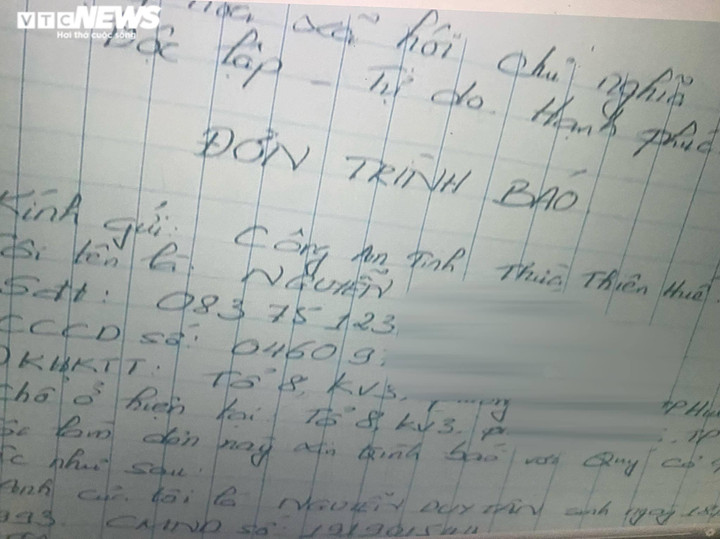 VTC NEWS
Hơi thở cuộc sống
xã hội chủ nghĩa
Độc lập - Tự do - Hạnh phúc
ĐƠN TRÌNH BÁO
Kính gửi: Công An Tỉnh Thừa Thiên Huế
Tôi tên là: NGUYỄN
Sđt: 083 75 123
CCCD số: 04609
ĐKHKTT: Tổ 8, KV3, TP Hu
Chỗ ở hiện tại: Tổ 8, KV3, p TP
làm đơn này xin trình báo với Quý cơ
như sau:
Anh của tôi là NGUYỄN DUY sinh ngày
993. CMND số 1919015